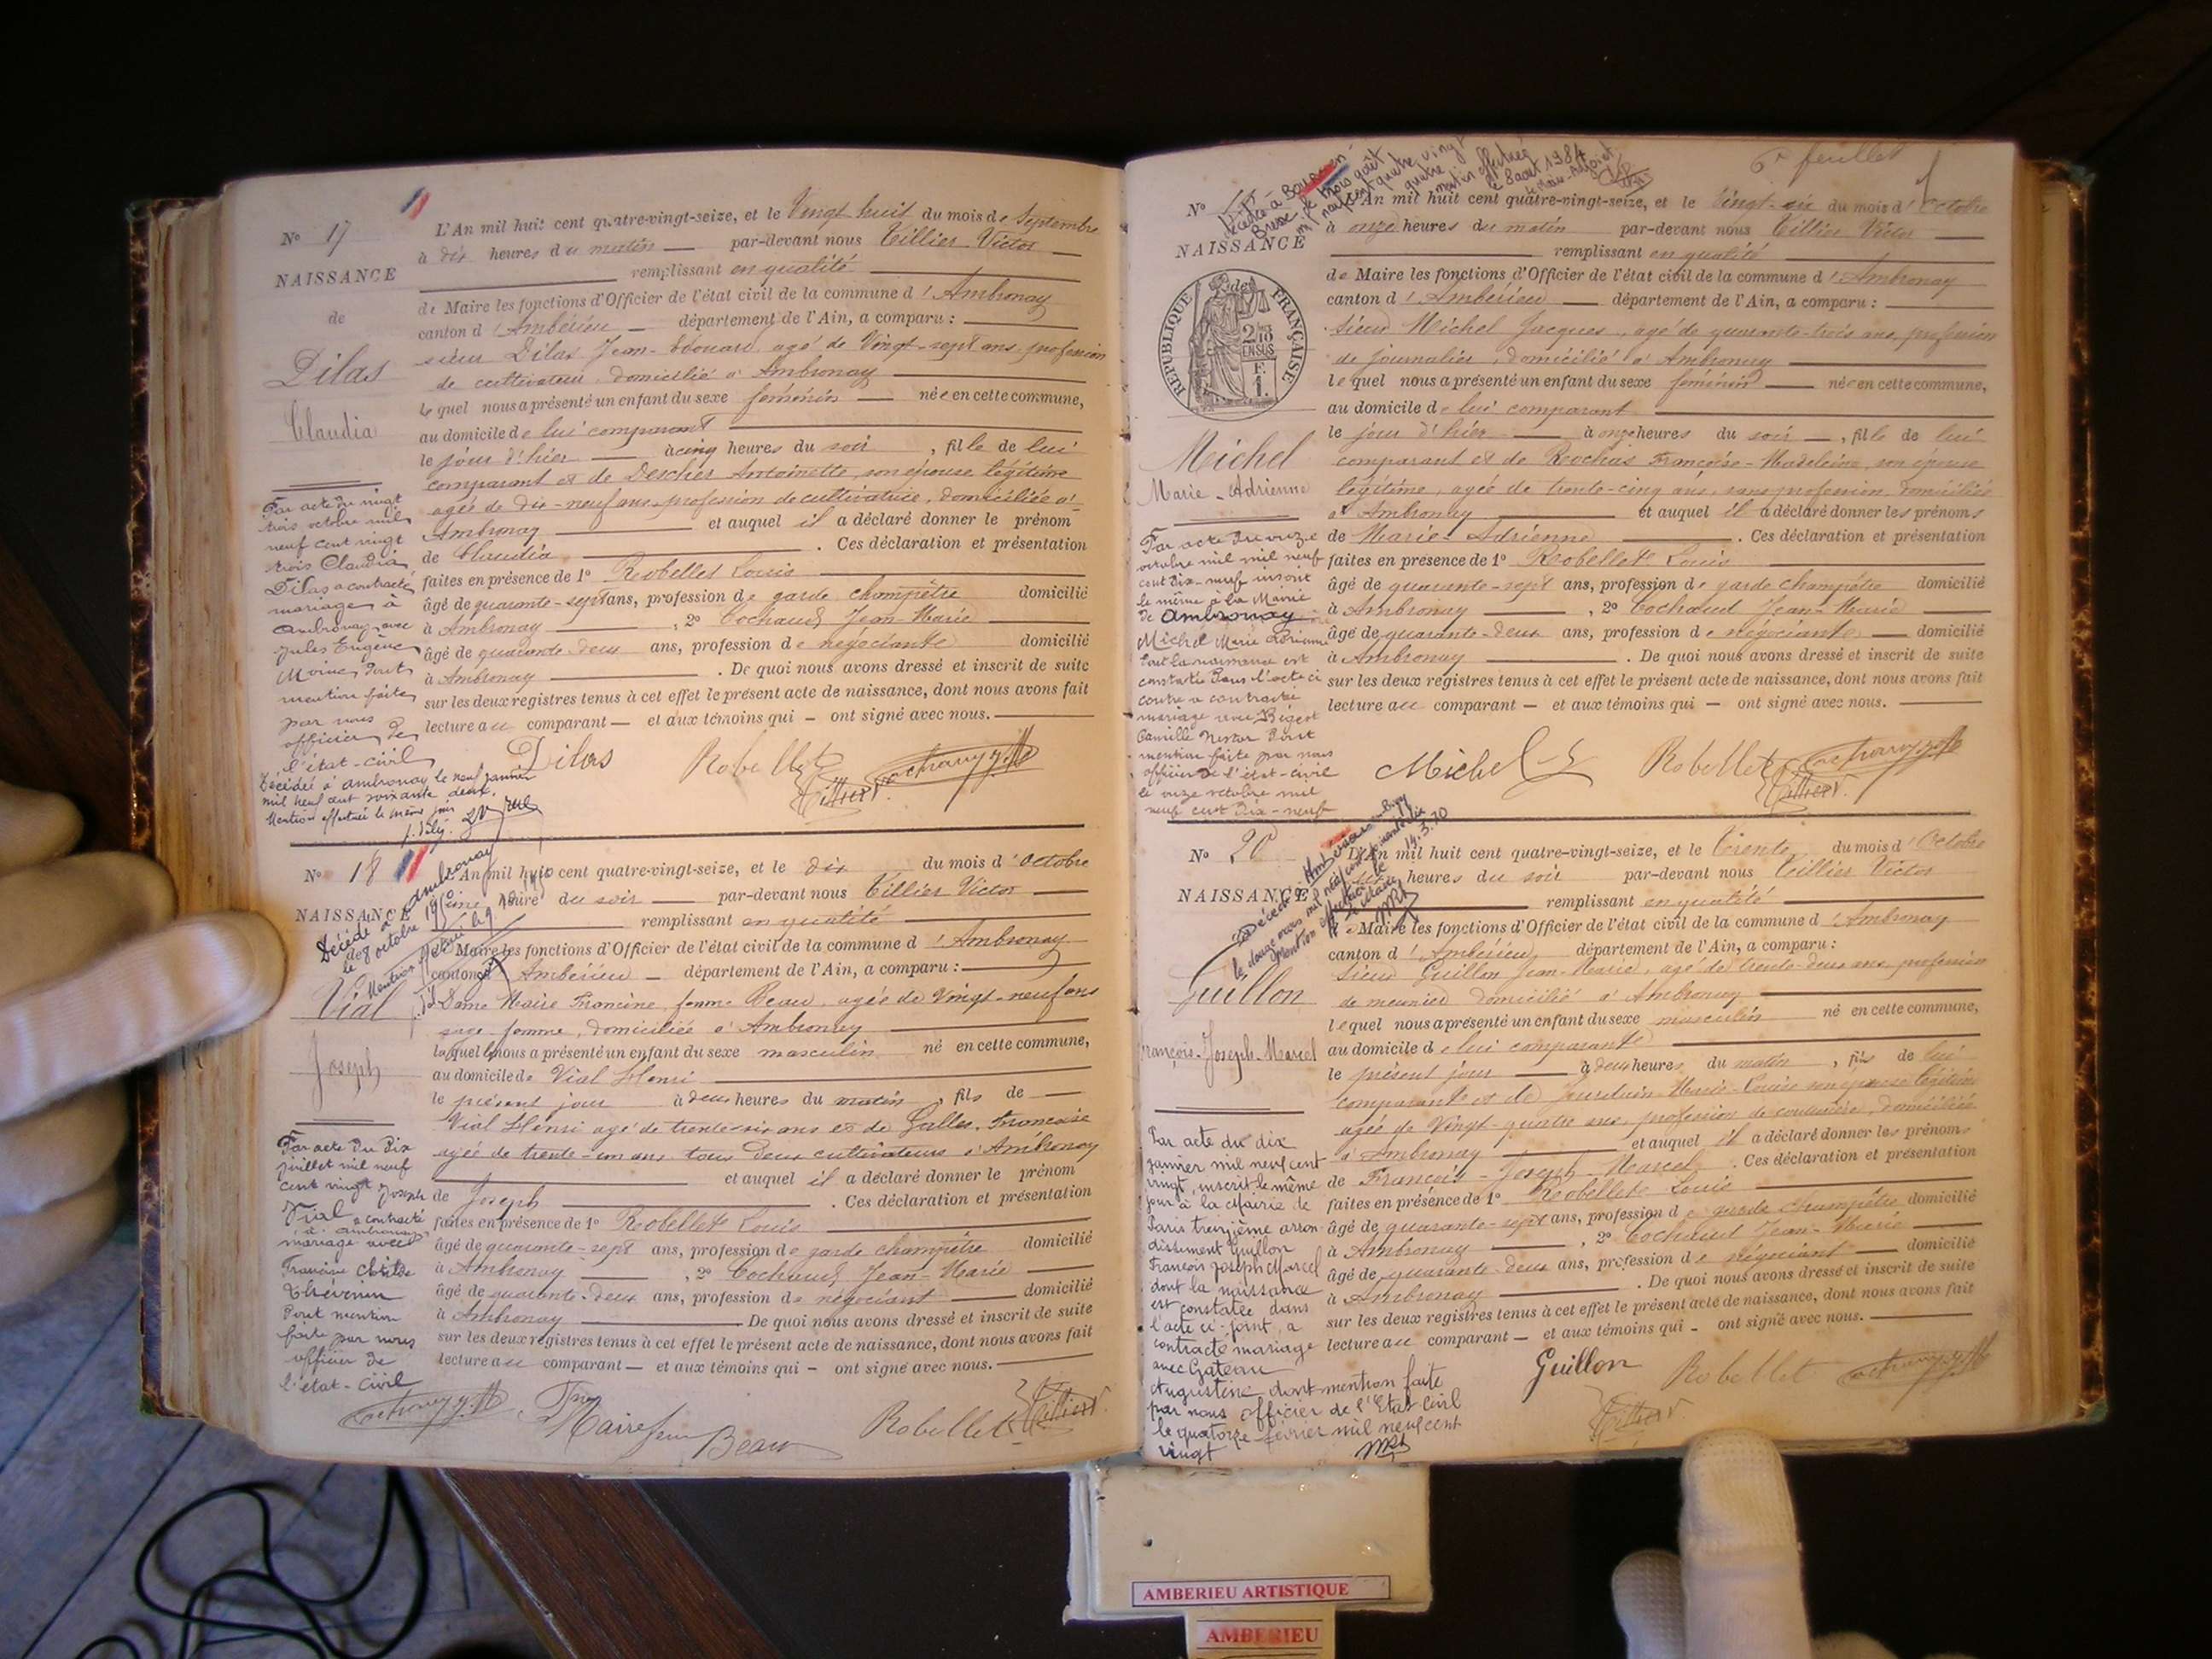 N° 17
NAISSANCE
de
Dilas
Claudia
L'An mil huit cent quatre-vingt-seize, et le Vingt huit du mois de Septembre
à dix heures du matin par-devant nous Tillier Victor
remplissant en qualité
de Maire les fonctions d'Officier de l'état civil de la commune d'Ambronay
canton d'Ambérieu département de l'Ain, a comparu :
sieur Dilas Jean-Edouard, agé de Vingt-sept ans, profession
de cultivateur, domicilié à Ambronay
lequel nous a présenté un enfant du sexe féminin née en cette commune,
au domicile de lui comparant
le jour d'hier à cinq heures du soir, fille de lui
comparant et de Descher Antoinette, son épouse légitime
agée de dix-neuf ans, profession de cultivatrice, domiciliée à
Ambronay et auquel il a déclaré donner le prénom
de Claudia. Ces déclaration et présentation
faites en présence de 1° Robellet Louis
âgé de quarante-sept ans, profession de garde champêtre domicilié
à Ambronay, 2° Cochaud Jean-Marie
âgé de quarante deux ans, profession de négociant domicilié
à Ambronay. De quoi nous avons dressé et inscrit de suite
sur les deux registres tenus à cet effet le présent acte de naissance, dont nous avons fait
lecture au comparant — et aux témoins qui — ont signé avec nous.
Par acte du vingt
trois octobre mil
neuf cent vingt
trois Claudia
Dilas a contracté
mariage à
Ambronay avec
Jules Eugène
Moine dont
mention faite
par nous
officier de
l'état-civil
Décédée à Ambronay le neuf janvier
mil neuf cent soixante deux.
Mention effectuée le même jour
Dilas Robellet
Tillier V.
N° 18
NAISSANCE
Vial
Joseph
Décédé à Ambronay
le 8 octobre
L'An mil huit cent quatre-vingt-seize, et le dix du mois d'Octobre
heures du soir par-devant nous Tillier Victor
remplissant en qualité
de Maire les fonctions d'Officier de l'état civil de la commune d'Ambronay
canton d'Ambérieu département de l'Ain, a comparu :
Dame Maire Francine, femme Beau, agée de Vingt-neuf ans
sage-femme, domiciliée à Ambronay
laquelle nous a présenté un enfant du sexe masculin né en cette commune,
au domicile de Vial Henri
le présent jour à deux heures du matin, fils de
Vial Henri agé de trente-six ans et de Gallet Francoise
agée de trente-un ans tous deux cultivateurs à Ambronay
et auquel il a déclaré donner le prénom
de Joseph. Ces déclaration et présentation
faites en présence de 1° Robellet Louis
âgé de quarante-sept ans, profession de garde champêtre domicilié
à Ambronay, 2° Cochaud Jean-Marie
âgé de quarante-deux ans, profession de négociant domicilié
à Ambronay De quoi nous avons dressé et inscrit de suite
sur les deux registres tenus à cet effet le présent acte de naissance, dont nous avons fait
lecture au comparant — et aux témoins qui — ont signé avec nous.
Par acte du dix
juillet mil neuf
cent vingt Joseph
Vial a contracté
à Ambronay
mariage avec
Francine Clotilde
Thévenin
Dont mention
faite par nous
officier de
l'état-civil
Maire femme Beau Robellet Tillier V.
6e feuillet
N°
NAISSANCE
RÉPUBLIQUE FRANÇAISE
Michel
Marie-Adrienne
L'An mil huit cent quatre-vingt-seize, et le Vingt-six du mois d'Octobre
à onze heures du matin par-devant nous Tillier Victor
remplissant en qualité
de Maire les fonctions d'Officier de l'état civil de la commune d'Ambronay
canton d'Ambérieu département de l'Ain, a comparu :
Sieur Michel Jacques, agé de quarante-trois ans, profession
de journalier, domicilié à Ambronay
lequel nous a présenté un enfant du sexe féminin née en cette commune,
au domicile de lui comparant
le jour d'hier à onze heures du soir, fille de lui
comparant et de Rochas Françoise-Madeleine, son épouse
légitime, agée de trente-cinq ans, sans profession, domiciliée
à Ambronay et auquel il a déclaré donner les prénoms
de Marie-Adrienne. Ces déclaration et présentation
faites en présence de 1° Robellet Louis
âgé de quarante-sept ans, profession de garde champêtre domicilié
à Ambronay, 2° Cochaud Jean-Marie
âgé de quarante-deux ans, profession de négociant domicilié
à Ambronay. De quoi nous avons dressé et inscrit de suite
sur les deux registres tenus à cet effet le présent acte de naissance, dont nous avons fait
lecture au comparant — et aux témoins qui — ont signé avec nous.
Par acte du onze
octobre mil neuf
cent dix-neuf inscrit
le même à la Mairie
de Ambronay
Michel Marie Adrienne
dont la naissance est
constatée dans l'acte ci
contre a contracté
mariage avec Bigeot
Camille Nestor Dont
mention faite par nous
officier de l'état-civil
le onze octobre mil
neuf cent dix-neuf
Michel Robellet
Tillier V.
N° 20
NAISSANCE
Guillon
François-Joseph-Marcel
L'An mil huit cent quatre-vingt-seize, et le Trente du mois d'Octobre
heures du soir par-devant nous Tillier Victor
remplissant en qualité
de Maire les fonctions d'Officier de l'état civil de la commune d'Ambronay
canton d'Ambérieu département de l'Ain, a comparu :
Sieur Guillon Jean-Marie, agé de trente-deux ans, profession
de meunier domicilié à Ambronay
lequel nous a présenté un enfant du sexe masculin né en cette commune,
au domicile de lui comparant
le présent jour à deux heures du matin, fils de lui
comparant et de Jourdain Marie-Louise son épouse légitime
agée de Vingt-quatre ans, profession de couturière, domiciliée
à Ambronay et auquel il a déclaré donner les prénoms
de François-Joseph-Marcel. Ces déclaration et présentation
faites en présence de 1° Robellet Louis
âgé de quarante-sept ans, profession de garde champêtre domicilié
à Ambronay, 2° Cochaud Jean-Marie
âgé de quarante-deux ans, profession de négociant domicilié
à Ambronay. De quoi nous avons dressé et inscrit de suite
sur les deux registres tenus à cet effet le présent acte de naissance, dont nous avons fait
lecture au comparant — et aux témoins qui — ont signé avec nous.
Par acte du dix
janvier mil neuf cent
vingt, inscrit le même
jour à la Mairie de
Paris treizième arron-
dissement Guillon
François Joseph Marcel
dont la naissance
est constatée dans
l'acte ci-joint, a
contracté mariage
avec Gateau
Augustine dont mention faite
par nous officier de l'Etat Civil
le quatorze février mil neuf cent
vingt
Guillon Robellet
Tillier V.
AMBERIEU ARTISTIQUE
AMBERIEU